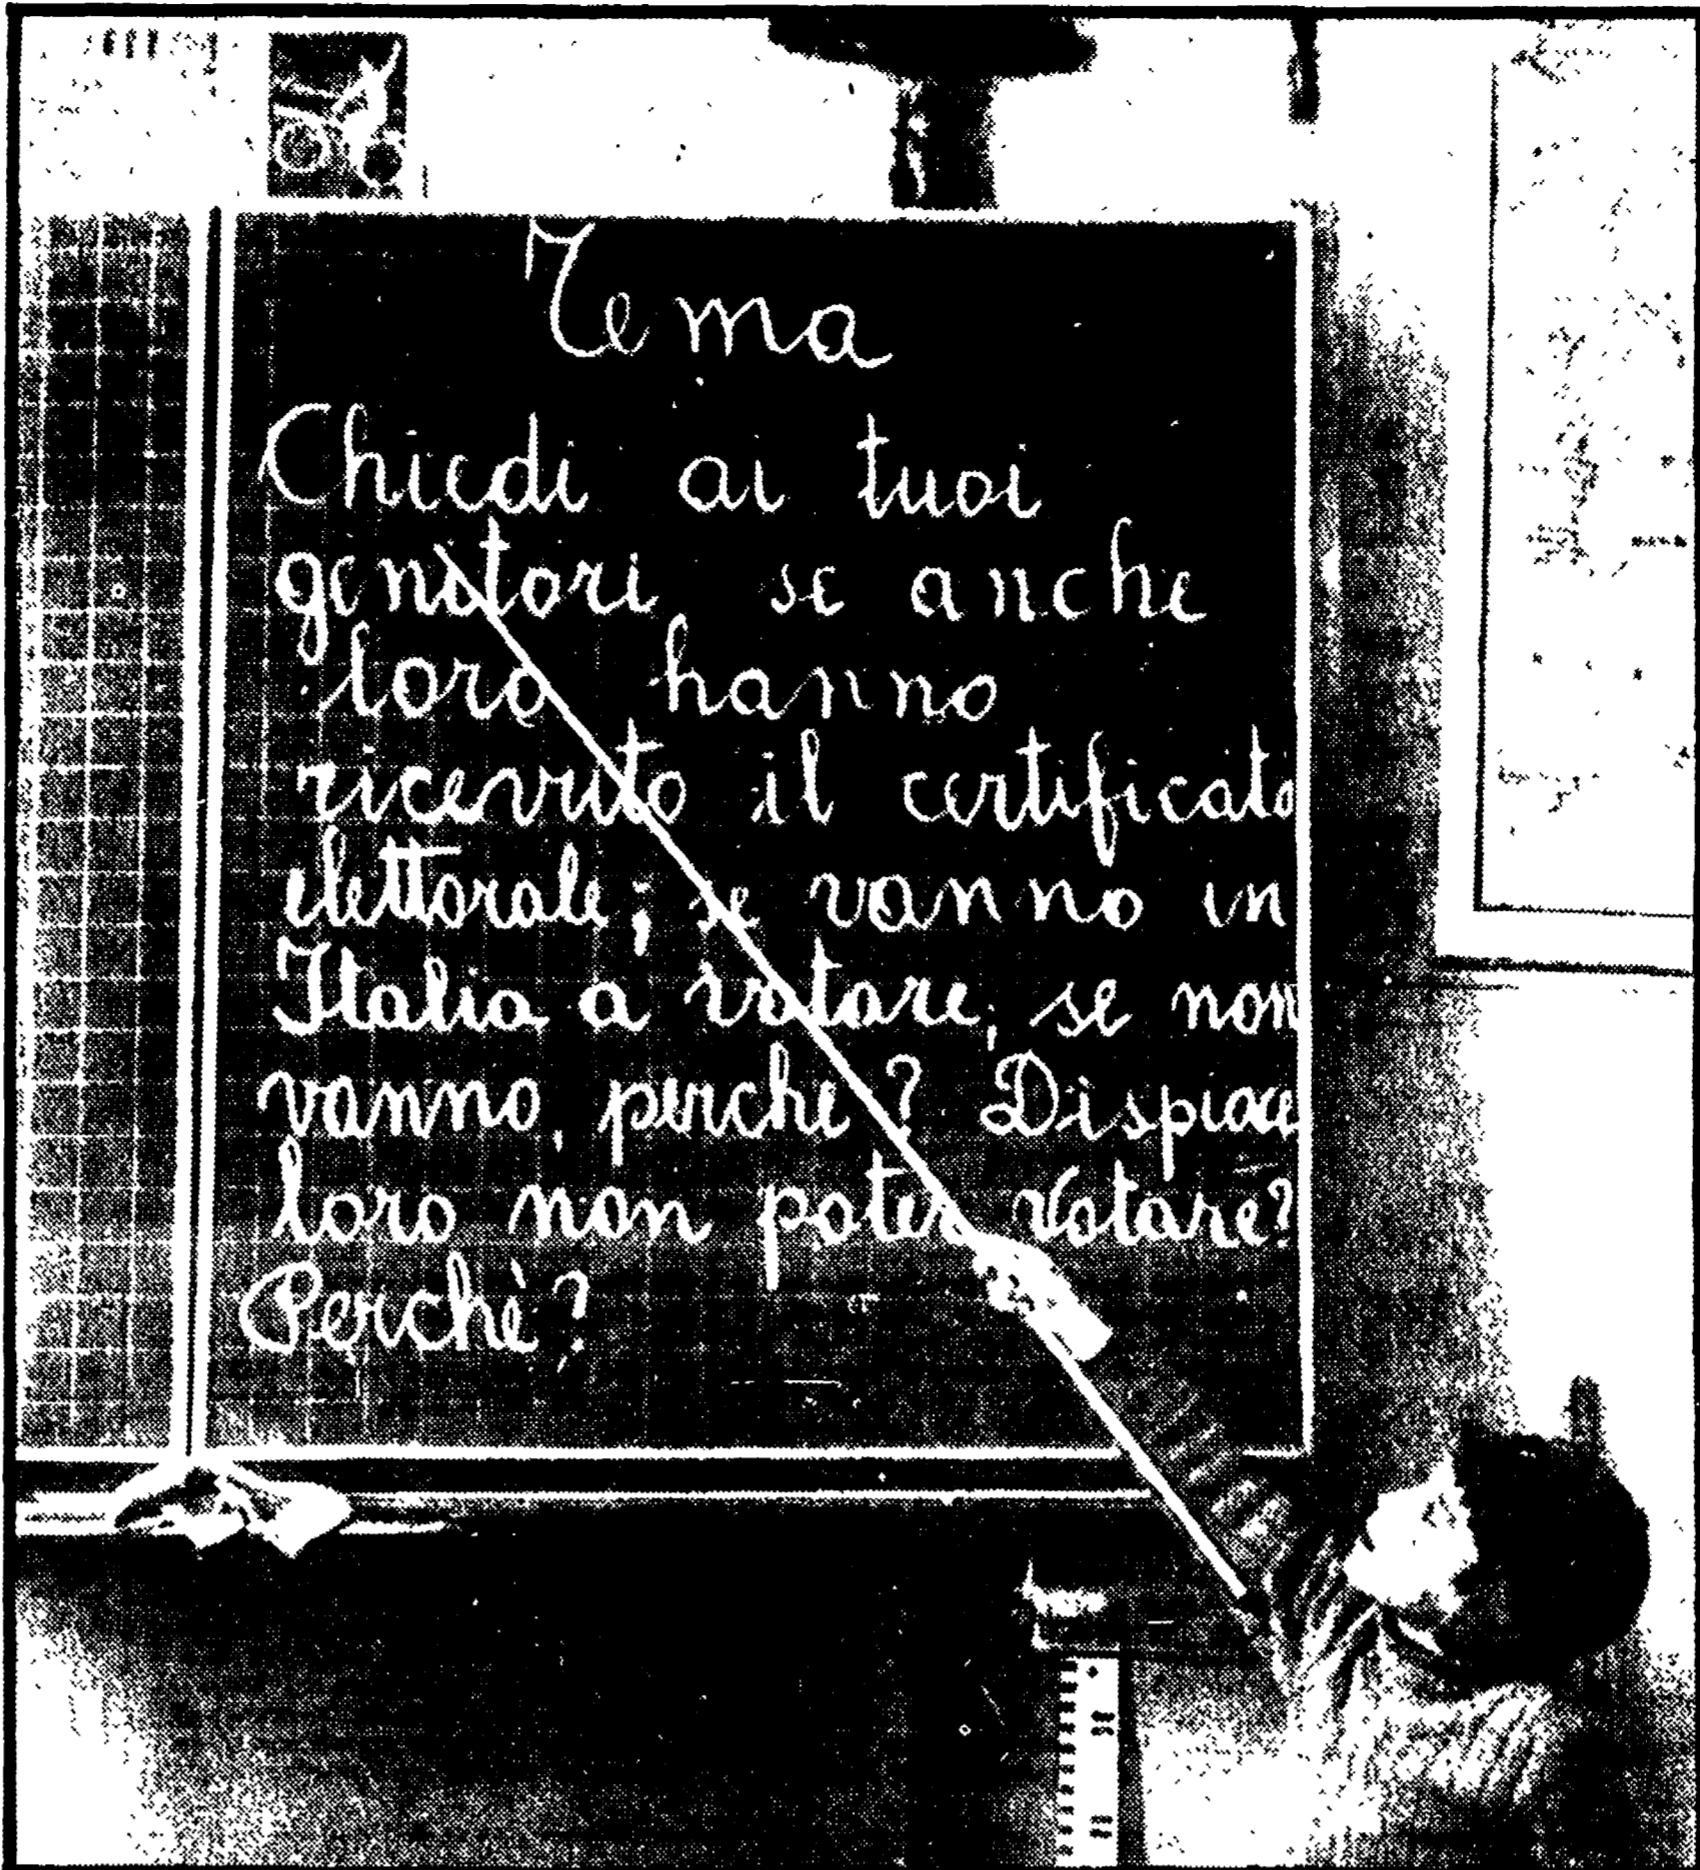 Tema
Chiedi ai tuoi
genitori se anche
loro hanno
ricevuto il certificato
elettorale; se vanno in
Italia a votare, se non
vanno, perche? Dispiace
loro non poter votare?
Perché?